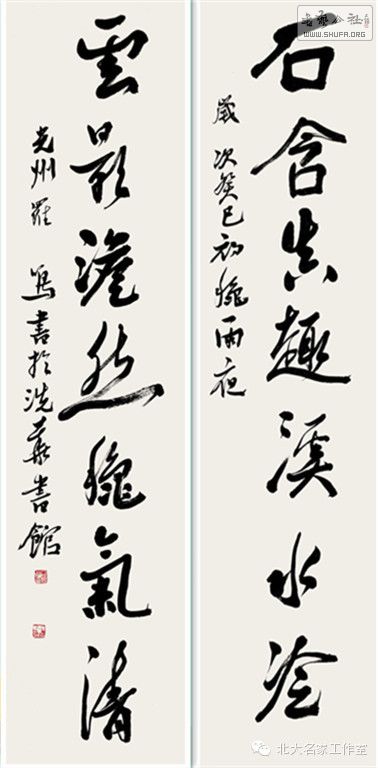 书法公社
WWW.SHUFA.ORG
石含真趣溪水冷
歲次癸巳初穐雨夜
雲影澹然穐氣清
光州羅 書於洗華書館
北大名家工作室